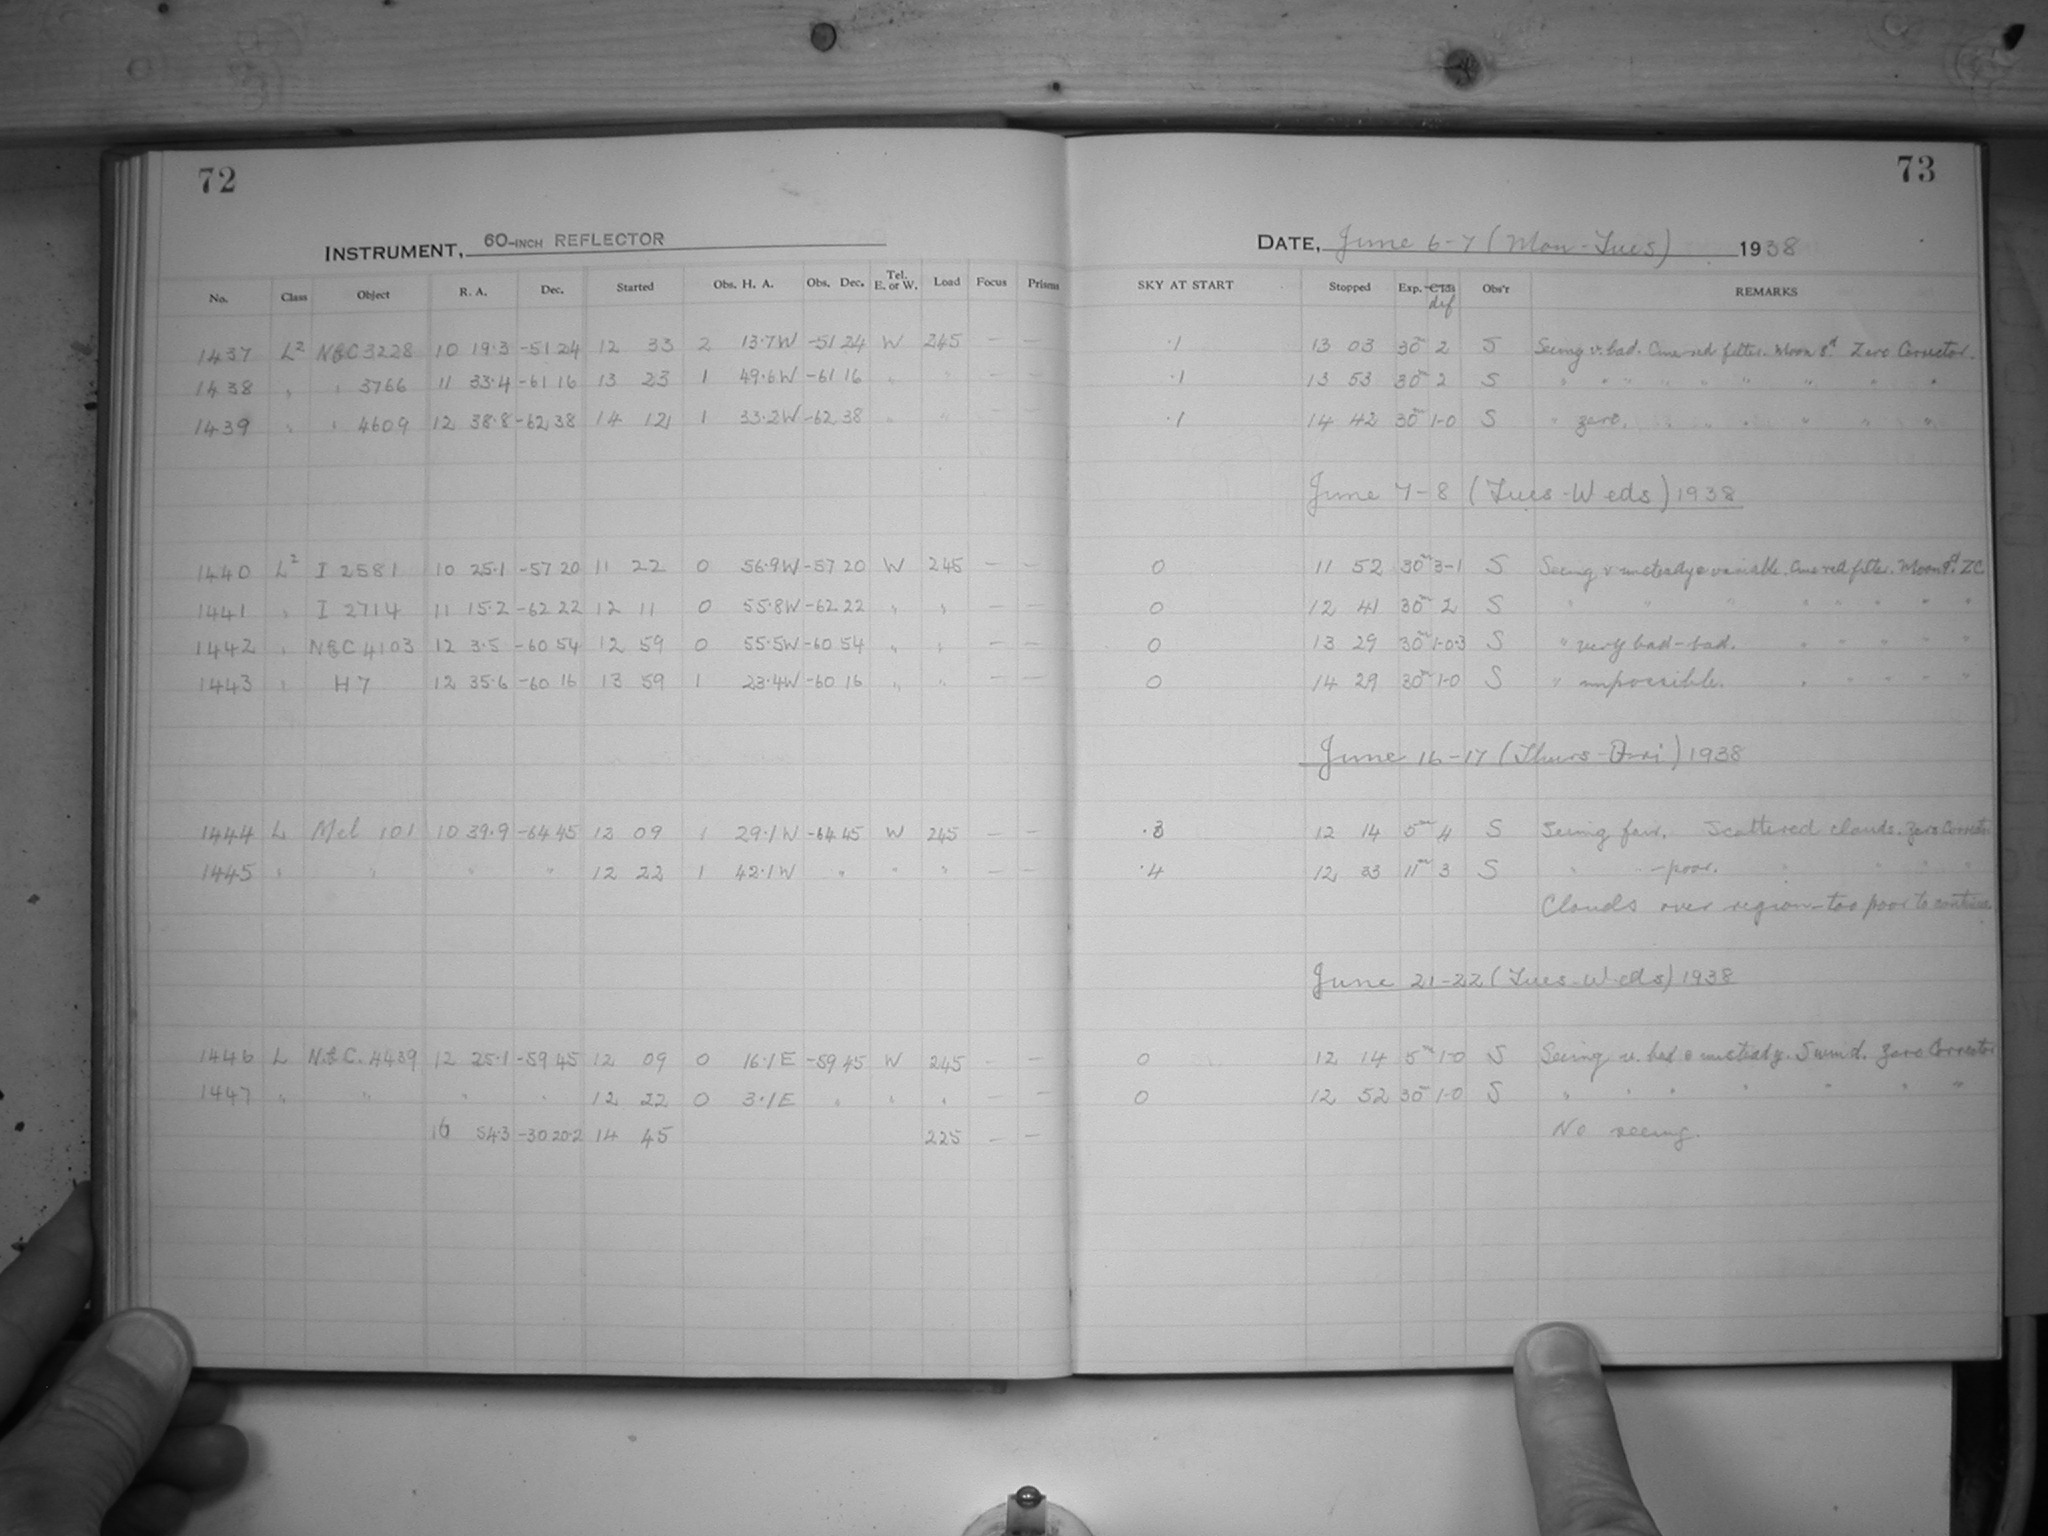 72
73
INSTRUMENT, 60-INCH REFLECTOR
DATE, June 6-7 (Mon-Tues) 1938
No. Class Object R. A. Dec. Started Obs. H. A. Obs. Dec. Tel. E. or W. Load Focus Prisms SKY AT START Stopped Exp. Class def Obs'r REMARKS
1437 L² NGC 3228 10 19.3 -51 24 12 33 2 13.7W -51 24 W 245 — — .1 13 03 30ᵐ 2 S Seeing v. bad. One red filter. Moon 8ᵈ Zero Corrector.
1438 " " 3766 11 33.4 -61 16 13 23 1 49.6W -61 16 " " — — .1 13 53 30ᵐ 2 S " " " " " " " " "
1439 " " 4609 12 38.8 -62 38 14 12 1 33.2W -62 38 " " — — .1 14 42 30ᵐ 1-0 S " zero. " " " " " "
June 7-8 (Tues-Weds) 1938
1440 L² I 2581 10 25.1 -57 20 11 22 0 56.9W -57 20 W 245 — — 0 11 52 30ᵐ 3-1 S Seeing v unsteady & variable. One red filter. Moon 9ᵈ. ZC
1441 " I 2714 11 15.2 -62 22 12 11 0 55.8W -62 22 " " — — 0 12 41 30ᵐ 2 S " " " " " " " "
1442 " NGC 4103 12 3.5 -60 54 12 59 0 55.5W -60 54 " " — — 0 13 29 30ᵐ 1-0.3 S " very bad-bad. " " " " "
1443 " H 7 12 35.6 -60 16 13 59 1 23.4W -60 16 " " — — 0 14 29 30ᵐ 1-0 S " impossible. " " " " "
June 16-17 (Thurs-Fri) 1938
1444 L Mel 101 10 39.9 -64 45 12 09 1 29.1W -64 45 W 245 — — .3 12 14 5ᵐ 4 S Seeing fair. Scattered clouds. Zero Corrector
1445 " " " " 12 22 1 42.1W " " " — — .4 12 33 11ᵐ 3 S " -poor. " " " "
Clouds over region-too poor to continue
June 21-22 (Tues-Weds) 1938
1446 L N.G.C. 4439 12 25.1 -59 45 12 09 0 16.1E -59 45 W 245 — — 0 12 14 5ᵐ 1-0 S Seeing v. bad & unsteady. S wind. Zero Corrector
1447 " " " " 12 22 0 3.1E " " " — — 0 12 52 30ᵐ 1-0 S " " " " " " "
16 54.3 -30 20.2 14 45 225 — — No seeing.